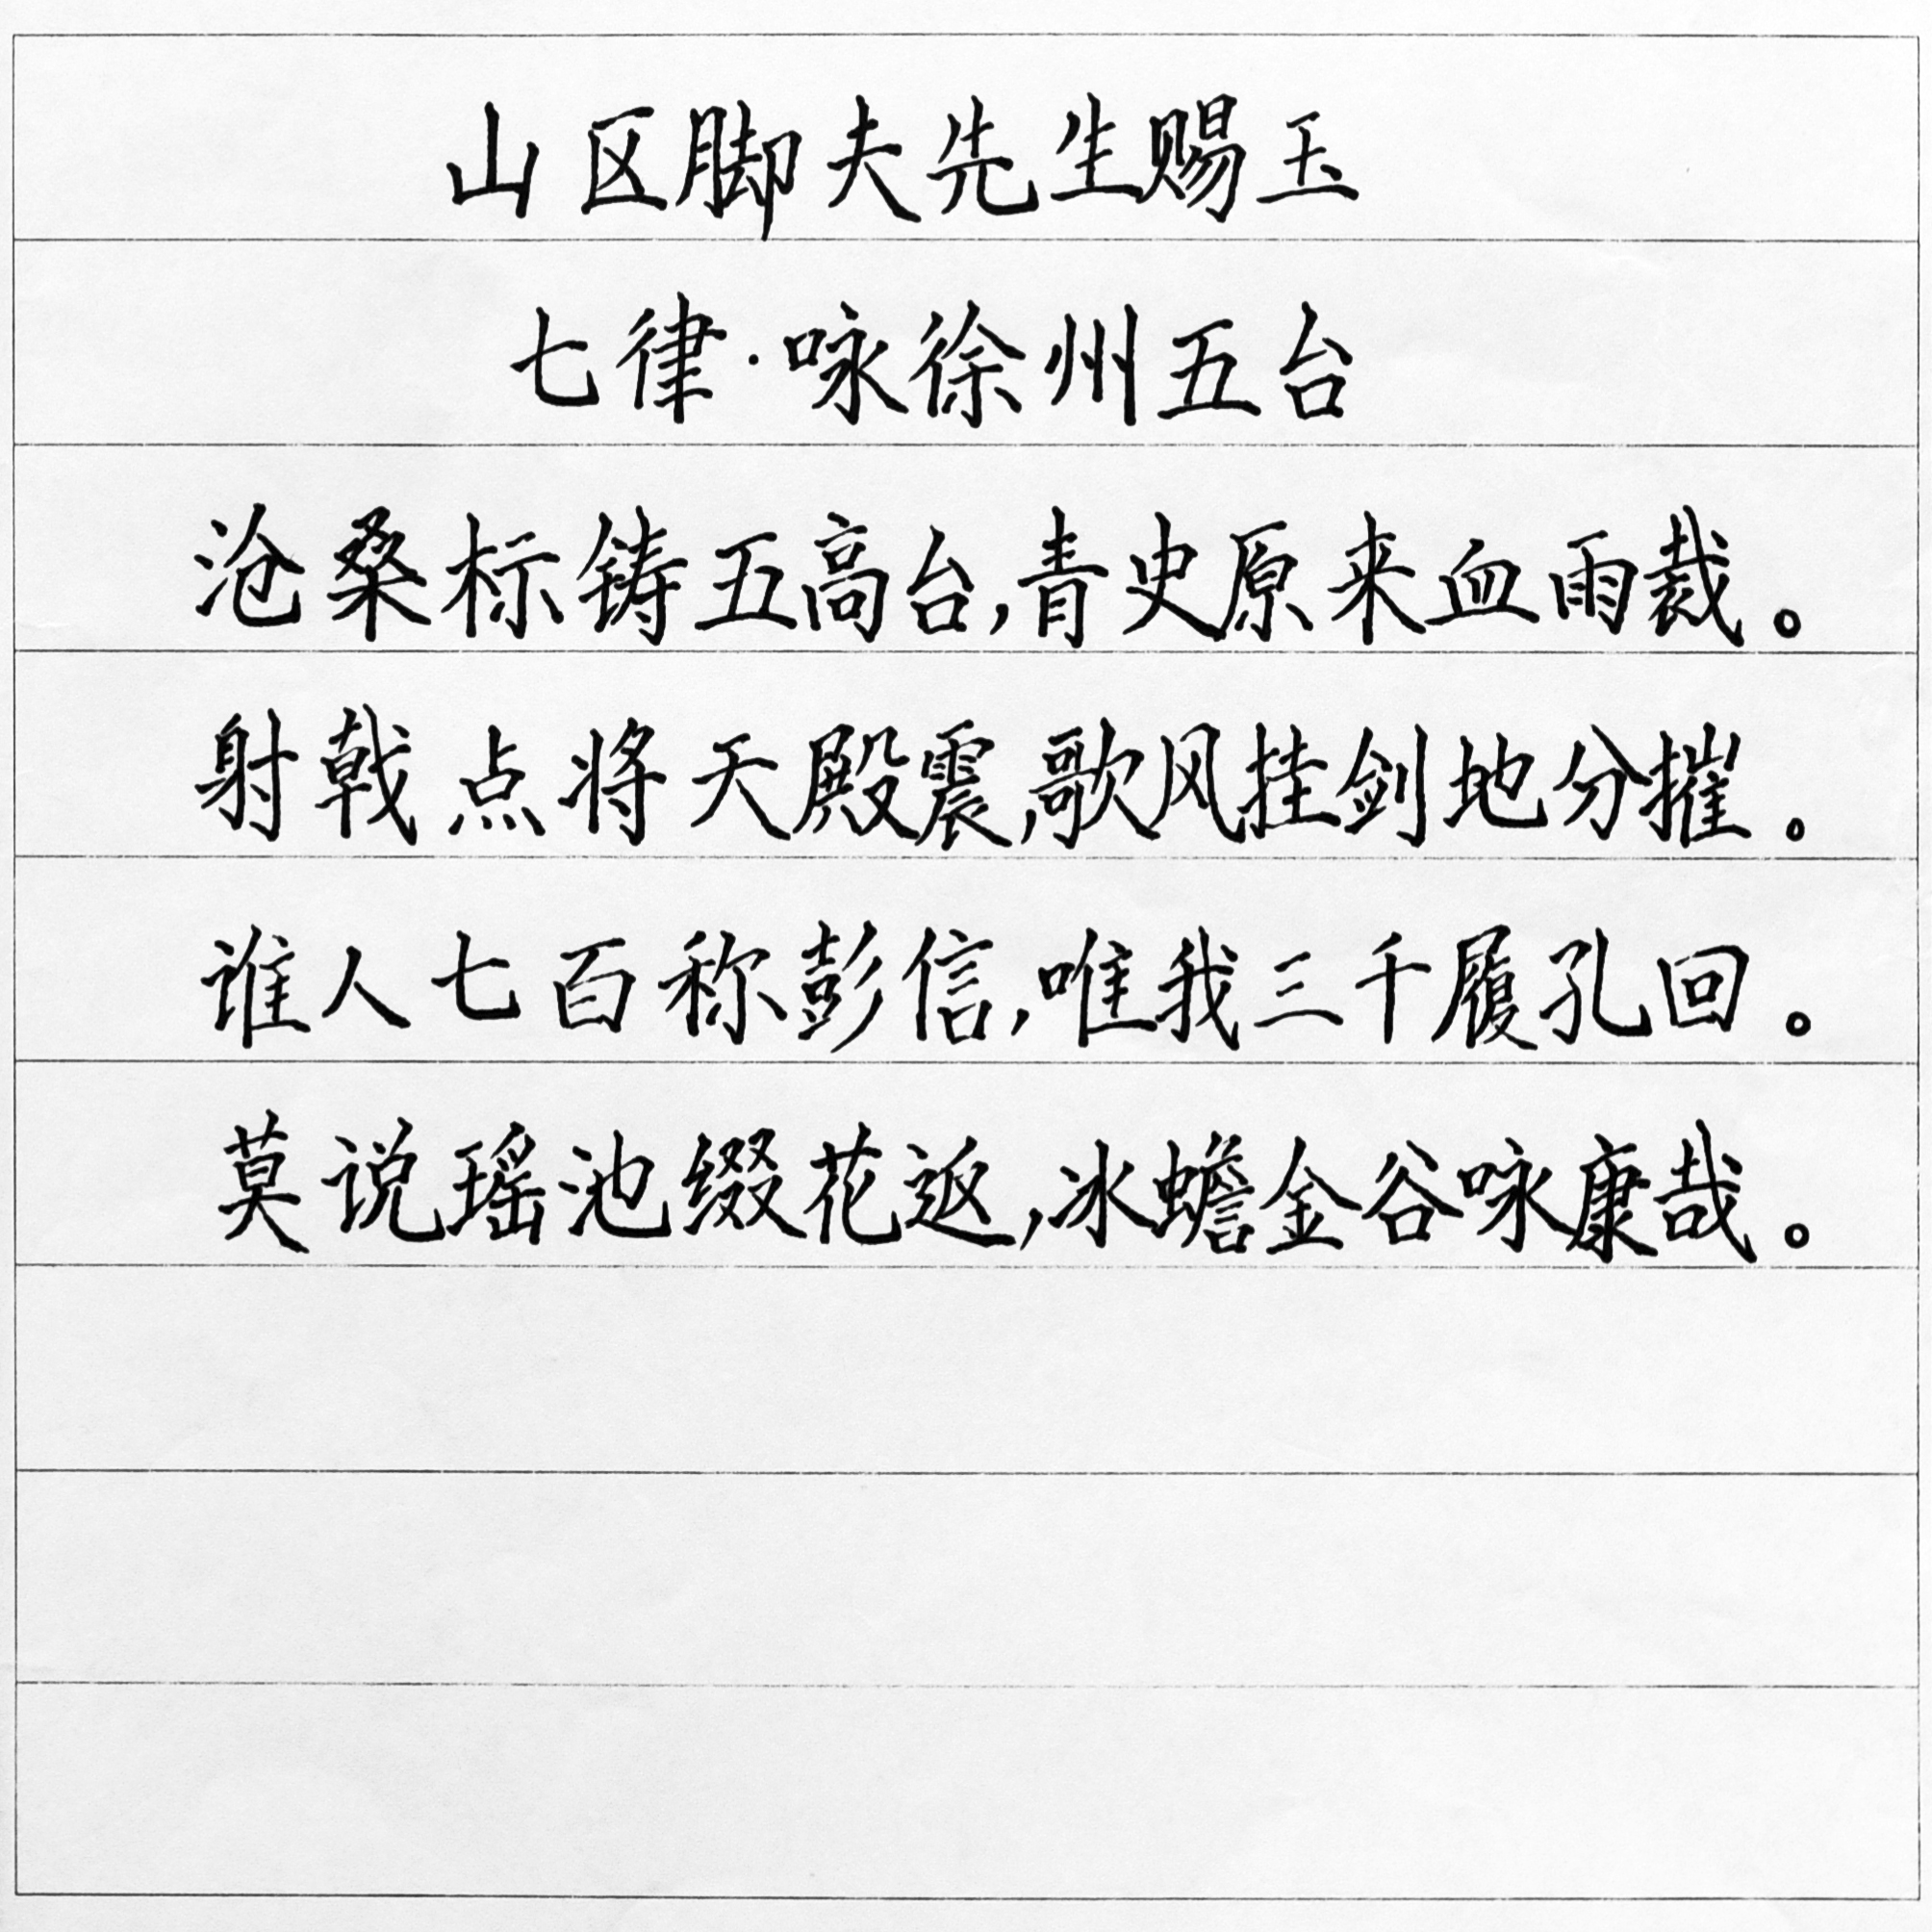 山区脚夫先生赐玉
七律·咏徐州五台
沧桑标铸五高台,青史原来血雨裁。
射戟点将天殿震,歌风挂剑地分摧。
谁人七百称彭信,唯我三千履孔回。
莫说瑶池缀花返,冰蟾金谷咏康哉。